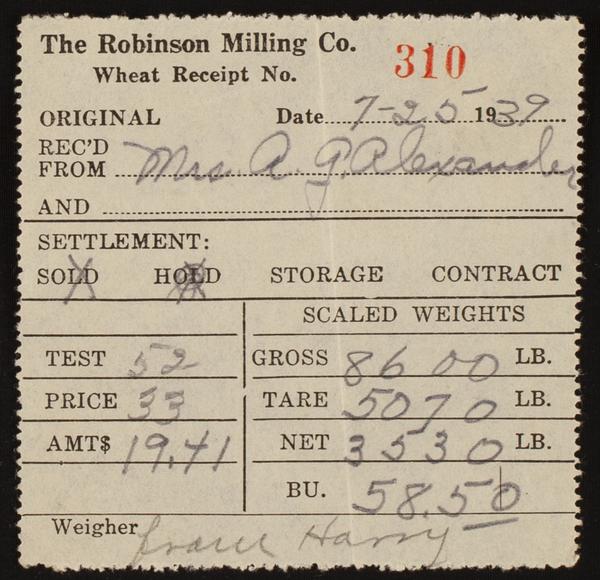 The Robinson Milling Co.
Wheat Receipt No. 310
ORIGINAL Date 7-25 1939
REC'D
FROM Mrs. A. G. Alexander
AND
SETTLEMENT:
SOLD HOLD STORAGE CONTRACT
SCALED WEIGHTS
TEST 52 GROSS 8600 LB.
PRICE 33 TARE 5070 LB.
AMT$ 19.41 NET 3530 LB.
BU. 58.50
Weigher Harry